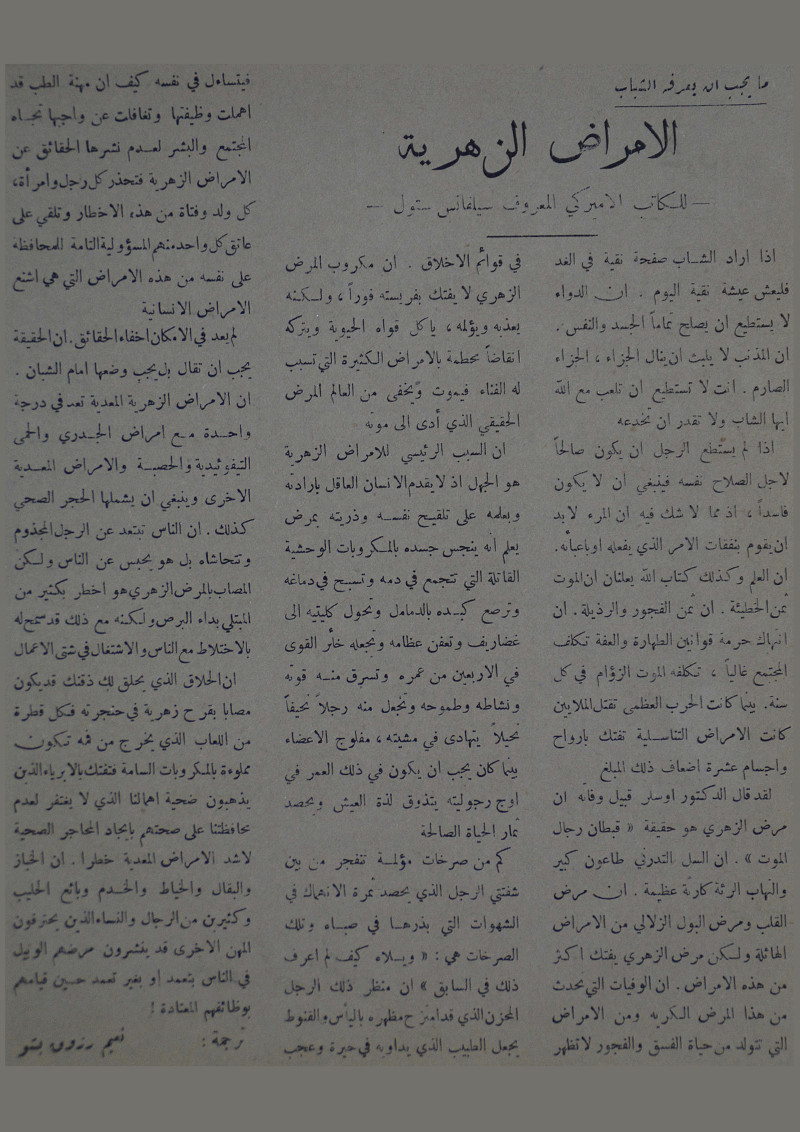 ما يجب ان يعرفه الشباب
الامراض الزهرية
— للكاتب الاميركي المعروف سيلفانس ستول —
اذا اراد الشاب صفحة نقية في الغد
فليعش عيشة نقية اليوم . ان الدواء
لا يستطيع ان يصلح تماماً الجسد والنفس .
ان المذنب لا يلبث ان ينال الجزاء ، الجزاء
الصارم . انت لا تستطيع ان تلعب مع الله
ايها الشاب ولا تقدر ان تخدعه
اذا لم يستطع الرجل ان يكون صالحاً
لاجل الصلاح نفسه فينبغي ان لا يكون
فاسداً ، اذ مما لا شك فيه ان المرء لابد
ان يقوم بنفقات الامر الذي يفعله او باعبائه .
ان العلم وكذلك كتاب الله يعلنان ان الموت
ثمن الخطيئة . ان ثمن الفجور والرذيلة . ان
انتهاك حرمة قوانين الطهارة والعفة تكلف
المجتمع غالياً ، تكلفه الموت الزؤام في كل
سنة . بينما كانت الحرب العظمى تقتل الملايين
كانت الامراض التناسلية تفتك بارواح
واجسام عشرة اضعاف ذلك المبلغ
لقد قال الدكتور اوسلر قبيل وفاته ان
مرض الزهري هو حقيقة « قبطان رجال
الموت » . ان السل التدرني طاعون كبير
والهاب الرئة كارثة عظيمة . ان مرض
القلب ومرض البول الزلالي من الامراض
الهائلة ولكن مرض الزهري يفتك اكثر
من هذه الامراض . ان الوفيات التي تحدث
من هذا المرض الكريه ومن الامراض
التي تتولد من حياة الفسق والفجور لا تظهر
في قوائم الاخلاق . ان مكروب المرض
الزهري لا يفتك بفريسته فوراً ، ولكنه
يعذبه ويؤلمه ، يأكل قواه الحيوية ويتركه
انقاضاً محطمة بالامراض الكثيرة التي تسبب
له الفناء فيموت ويخفى من العالم المرض
الحقيقي الذي أدى الى موته
ان السبب الرئيسي للامراض الزهرية
هو الجهل اذ لا يقدم الانسان العاقل بارادته
وبعلمه على تلقيح نفسه وذريته بمرض
يعلم انه ينجس جسده بالمكروبات الوحشية
القاتلة التي تتجمع في دمه وتسبح في دماغه
وترصع كبده بالدمامل وتحول كليتيه الى
غضاريف وتعفن عظامه وتجعله خائر القوى
في الاربعين من عمره وتسرق منه قوته
ونشاطه وطموحه وتجعل منه رجلاً نحيفاً
نحيلاً يتهادى في مشيته ، مفلوج الاعضاء
بينما كان يجب ان يكون في ذلك العمر في
اوج رجوليته يتذوق لذة العيش ويحصد
ثمار الحياة الصالحة
كم من صرخات مؤلمة تنفجر من بين
شفتي الرجل الذي يحصد ثمرة الانهماك في
الشهوات التي بذرها في صباه وتلك
الصرخات هي : « ويلاه كيف لم اعرف
ذلك في السابق » ان منظر ذلك الرجل
المحزن الذي قد امتزج مظهره باليأس والقنوط
يجعل الطبيب الذي يداويه في حيرة وعجب
فيتساءل في نفسه كيف ان مهنة الطب قد
اهملت وظيفتها وتغافلت عن واجبها تجاه
المجتمع والبشر لعدم نشرها الحقائق عن
الامراض الزهرية فتحذر كل رجل وامرأة ،
كل ولد وفتاة من هذه الاخطار وتلقي على
عاتق كل واحد منهم المسؤولية التامة للمحافظة
على نفسه من هذه الامراض التي هي اشنع
الامراض الانسانية
لم يعد في الامكان اخفاء الحقائق . ان الحقيقة
يجب ان تقال بل يجب وضعها امام الشبان .
ان الامراض الزهرية المعدية تعد في درجة
واحدة مع امراض الجدري والحمى
التيفوئيدية والحصبة والامراض المعدية
الاخرى وينبغي ان يشملها الحجر الصحي
كذلك . ان الناس تبتعد عن الرجل المجذوم
وتتحاشاه بل هو يحبس عن الناس ولكن
المصاب بالمرض الزهري هو اخطر بكثير من
المبتلي بداء البرص ولكنه مع ذلك قد سمح له
بالاختلاط مع الناس والاشتغال في شتى الاعمال
ان الحلاق الذي يحلق لك ذقنك قد يكون
مصابا بقرح زهرية في حنجرته فكل قطرة
من اللعاب الذي يخرج من فمه تكون
مملوءة بالمكروبات السامة فتفتك بالابرياء الذين
يذهبون ضحية اهمالنا الذي لا يغتفر لعدم
محافظتنا على صحتهم بايجاد المحاجر الصحية
لاشد الامراض المعدية خطرا . ان الخباز
والبقال والخياط والخدم وبائع الحليب
وكثيرين من الرجال والنساء الذين يحترفون
المهن الاخرى قد ينشرون مرضهم الوبيل
في الناس بتعمد او بغير تعمد حين قيامهم
بوظائفهم المعتادة !
ترجمة : نعيم رزوق بتو